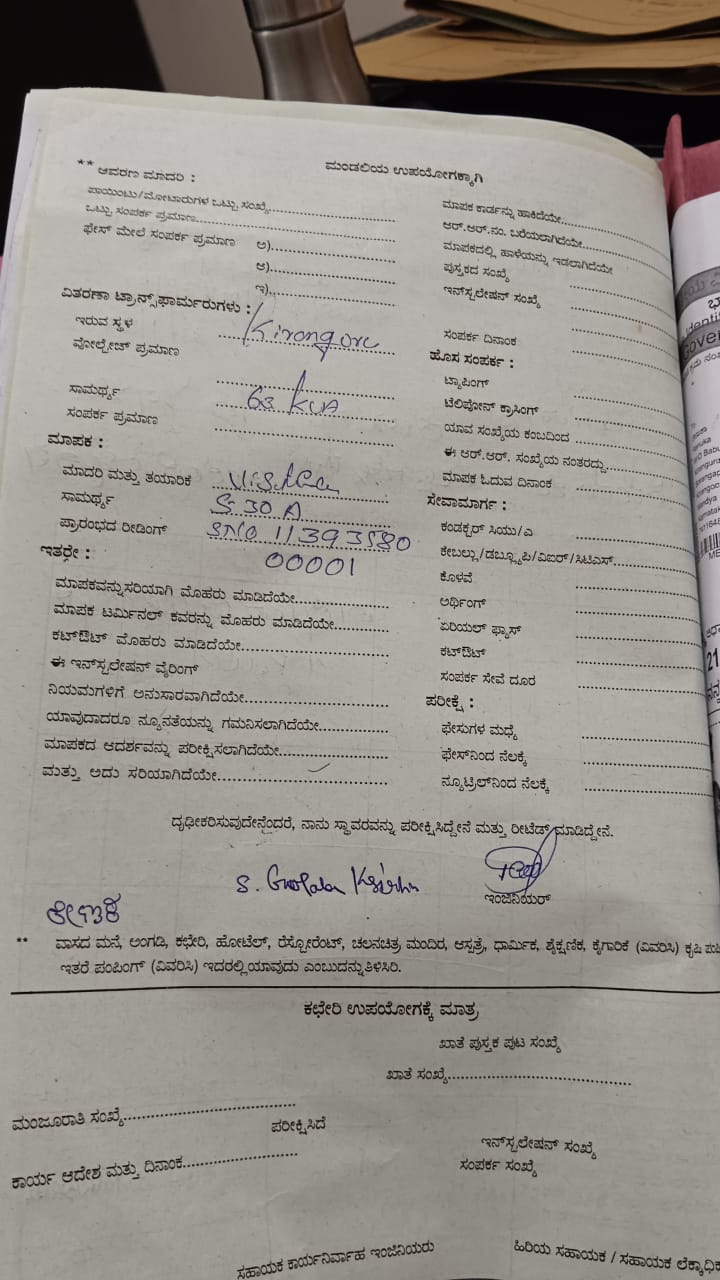 ಮಂಡಲಿಯ ಉಪಯೋಗಕ್ಕಾಗಿ
** ಆವರಣ ಮಾದರಿ :
ಪಾಯಿಂಟು/ಮೋಟಾರುಗಳ ಒಟ್ಟು ಸಂಖ್ಯೆ
ಒಟ್ಟು ಸಂಪರ್ಕ ಪ್ರಮಾಣ
ಫೇಸ್ ಮೇಲೆ ಸಂಪರ್ಕ ಪ್ರಮಾಣ ಅ)
ಆ)
ಇ)
ವಿತರಣಾ ಟ್ರಾನ್ಸ್‌ಫಾರ್ಮರುಗಳು :
ಇರುವ ಸ್ಥಳ
ವೋಲ್ಟೇಜ್ ಪ್ರಮಾಣ
ಸಾಮರ್ಥ್ಯ 63 KVA
ಸಂಪರ್ಕ ಪ್ರಮಾಣ
ಮಾಪಕ :
ಮಾದರಿ ಮತ್ತು ತಯಾರಿಕೆ
ಸಾಮರ್ಥ್ಯ 5-30 A
ಪ್ರಾರಂಭದ ರೀಡಿಂಗ್ SNO 11393580
00001
ಇತರೇ :
ಮಾಪಕವನ್ನು ಸರಿಯಾಗಿ ಮೊಹರು ಮಾಡಿದೆಯೇ
ಮಾಪಕ ಟರ್ಮಿನಲ್ ಕವರನ್ನು ಮೊಹರು ಮಾಡಿದೆಯೇ
ಕಟ್‌ಔಟ್ ಮೊಹರು ಮಾಡಿದೆಯೇ
ಈ ಇನ್‌ಸ್ಟಲೇಷನ್ ವೈರಿಂಗ್
ನಿಯಮಗಳಿಗೆ ಅನುಸಾರವಾಗಿದೆಯೇ
ಯಾವುದಾದರೂ ನ್ಯೂನತೆಯನ್ನು ಗಮನಿಸಲಾಗಿದೆಯೇ
ಮಾಪಕದ ಆದರ್ಶವನ್ನು ಪರೀಕ್ಷಿಸಲಾಗಿದೆಯೇ
ಮತ್ತು ಅದು ಸರಿಯಾಗಿದೆಯೇ
ಮಾಪಕ ಕಾರ್ಡನ್ನು ಹಾಕಿದೆಯೇ
ಆರ್.ಆರ್.ನಂ. ಬರೆಯಲಾಗಿದೆಯೇ
ಮಾಪಕದಲ್ಲಿ ಹಾಳೆಯನ್ನು ಇಡಲಾಗಿದೆಯೇ
ಪುಸ್ತಕದ ಸಂಖ್ಯೆ
ಇನ್‌ಸ್ಟಲೇಷನ್ ಸಂಖ್ಯೆ
ಸಂಪರ್ಕ ದಿನಾಂಕ
ಹೊಸ ಸಂಪರ್ಕ :
ಟ್ಯಾಪಿಂಗ್
ಟೆಲಿಫೋನ್ ಕ್ರಾಸಿಂಗ್
ಯಾವ ಸಂಖ್ಯೆಯ ಕಂಬದಿಂದ
ಈ ಆರ್.ಆರ್. ಸಂಖ್ಯೆಯ ನಂತರದ್ದು
ಮಾಪಕ ಓದುವ ದಿನಾಂಕ
ಸೇವಾಮಾರ್ಗ :
ಕಂಡಕ್ಟರ್ ಸಿಯು/ಎ
ಕೇಬಲ್ಲು/ಡಬ್ಲ್ಯೂಪಿ/ವಿಐರ್/ಸಿಟಿಎಸ್
ಕೊಳವೆ
ಅರ್ಥಿಂಗ್
ಏರಿಯಲ್ ಫ್ಯೂಸ್
ಕಟ್‌ಔಟ್
ಸಂಪರ್ಕ ಸೇವೆ ದೂರ
ಪರೀಕ್ಷೆ :
ಫೇಸುಗಳ ಮಧ್ಯೆ
ಫೇಸ್‌ನಿಂದ ನೆಲಕ್ಕೆ
ನ್ಯೂಟ್ರಿಲ್‌ನಿಂದ ನೆಲಕ್ಕೆ
ದೃಢೀಕರಿಸುವುದೇನೆಂದರೆ, ನಾನು ಸ್ಥಾವರವನ್ನು ಪರೀಕ್ಷಿಸಿದ್ದೇನೆ ಮತ್ತು ರೀಟೆಡ್ ಮಾಡಿದ್ದೇನೆ.
ಇಂಜಿನಿಯರ್
** ವಾಸದ ಮನೆ, ಅಂಗಡಿ, ಕಛೇರಿ, ಹೋಟೆಲ್, ರೆಸ್ಟೋರೆಂಟ್, ಚಲನಚಿತ್ರ ಮಂದಿರ, ಆಸ್ಪತ್ರೆ, ಧಾರ್ಮಿಕ, ಶೈಕ್ಷಣಿಕ, ಕೈಗಾರಿಕೆ (ವಿವರಿಸಿ) ಕೃಷಿ
ಇತರೆ ಪಂಪಿಂಗ್ (ವಿವರಿಸಿ) ಇದರಲ್ಲಿ ಯಾವುದು ಎಂಬುದನ್ನು ತಿಳಿಸಿರಿ.
ಕಛೇರಿ ಉಪಯೋಗಕ್ಕೆ ಮಾತ್ರ
ಖಾತೆ ಪುಸ್ತಕ ಪುಟ ಸಂಖ್ಯೆ
ಖಾತೆ ಸಂಖ್ಯೆ
ಮಂಜೂರಾತಿ ಸಂಖ್ಯೆ
ಪರೀಕ್ಷಿಸಿದೆ
ಇನ್‌ಸ್ಟಲೇಷನ್ ಸಂಖ್ಯೆ
ಕಾರ್ಯ ಆದೇಶ ಮತ್ತು ದಿನಾಂಕ
ಸಂಪರ್ಕ ಸಂಖ್ಯೆ
ಸಹಾಯಕ ಕಾರ್ಯನಿರ್ವಾಹ ಇಂಜಿನಿಯರು
ಹಿರಿಯ ಸಹಾಯಕ / ಸಹಾಯಕ